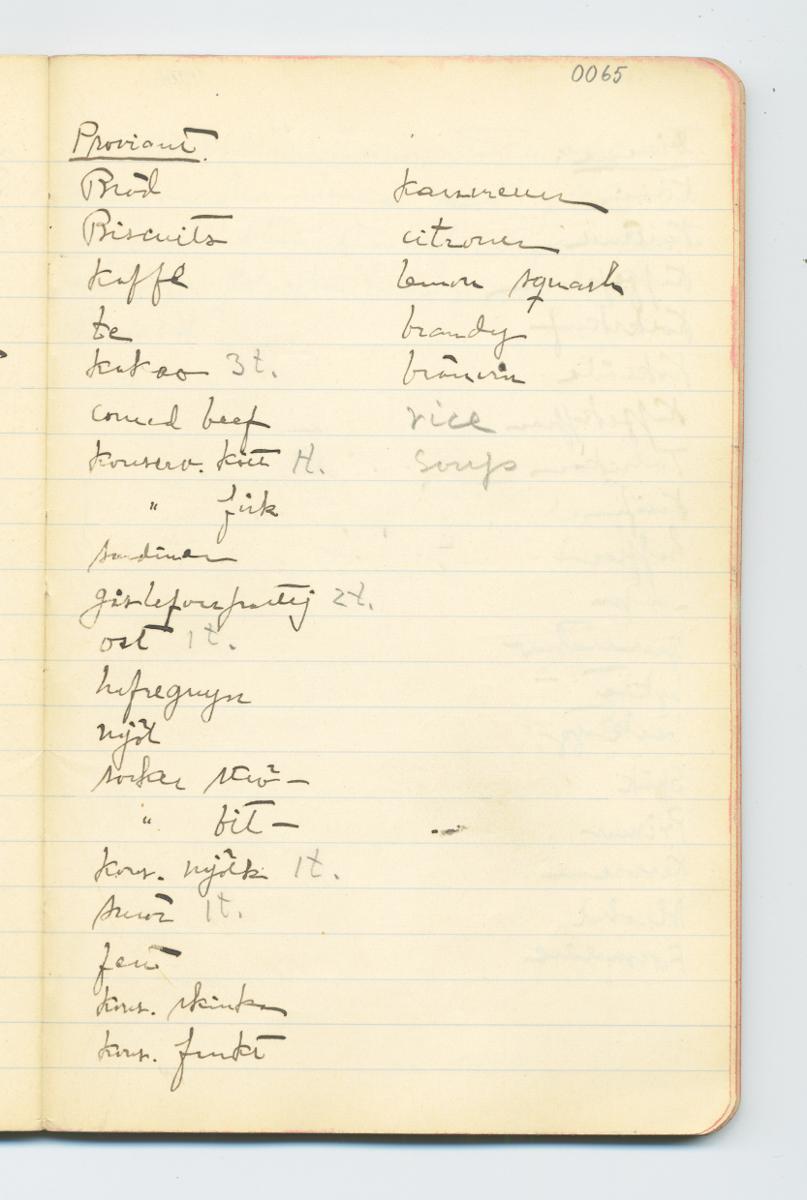 0065
Proviant.
Bröd
Biscuits
kaffe
te
kakao 3t.
corned beef
konserv. kött
" fisk
sardiner
gåsleferpastej 2t.
ost 1t.
hafregryn
mjöl
socker strö-
" bit-
kons. mjölk 1t.
smör 1t.
fett
kons. skinka
kons. frukt
citroner
lemon squash
brandy
brännvin
rice
soups